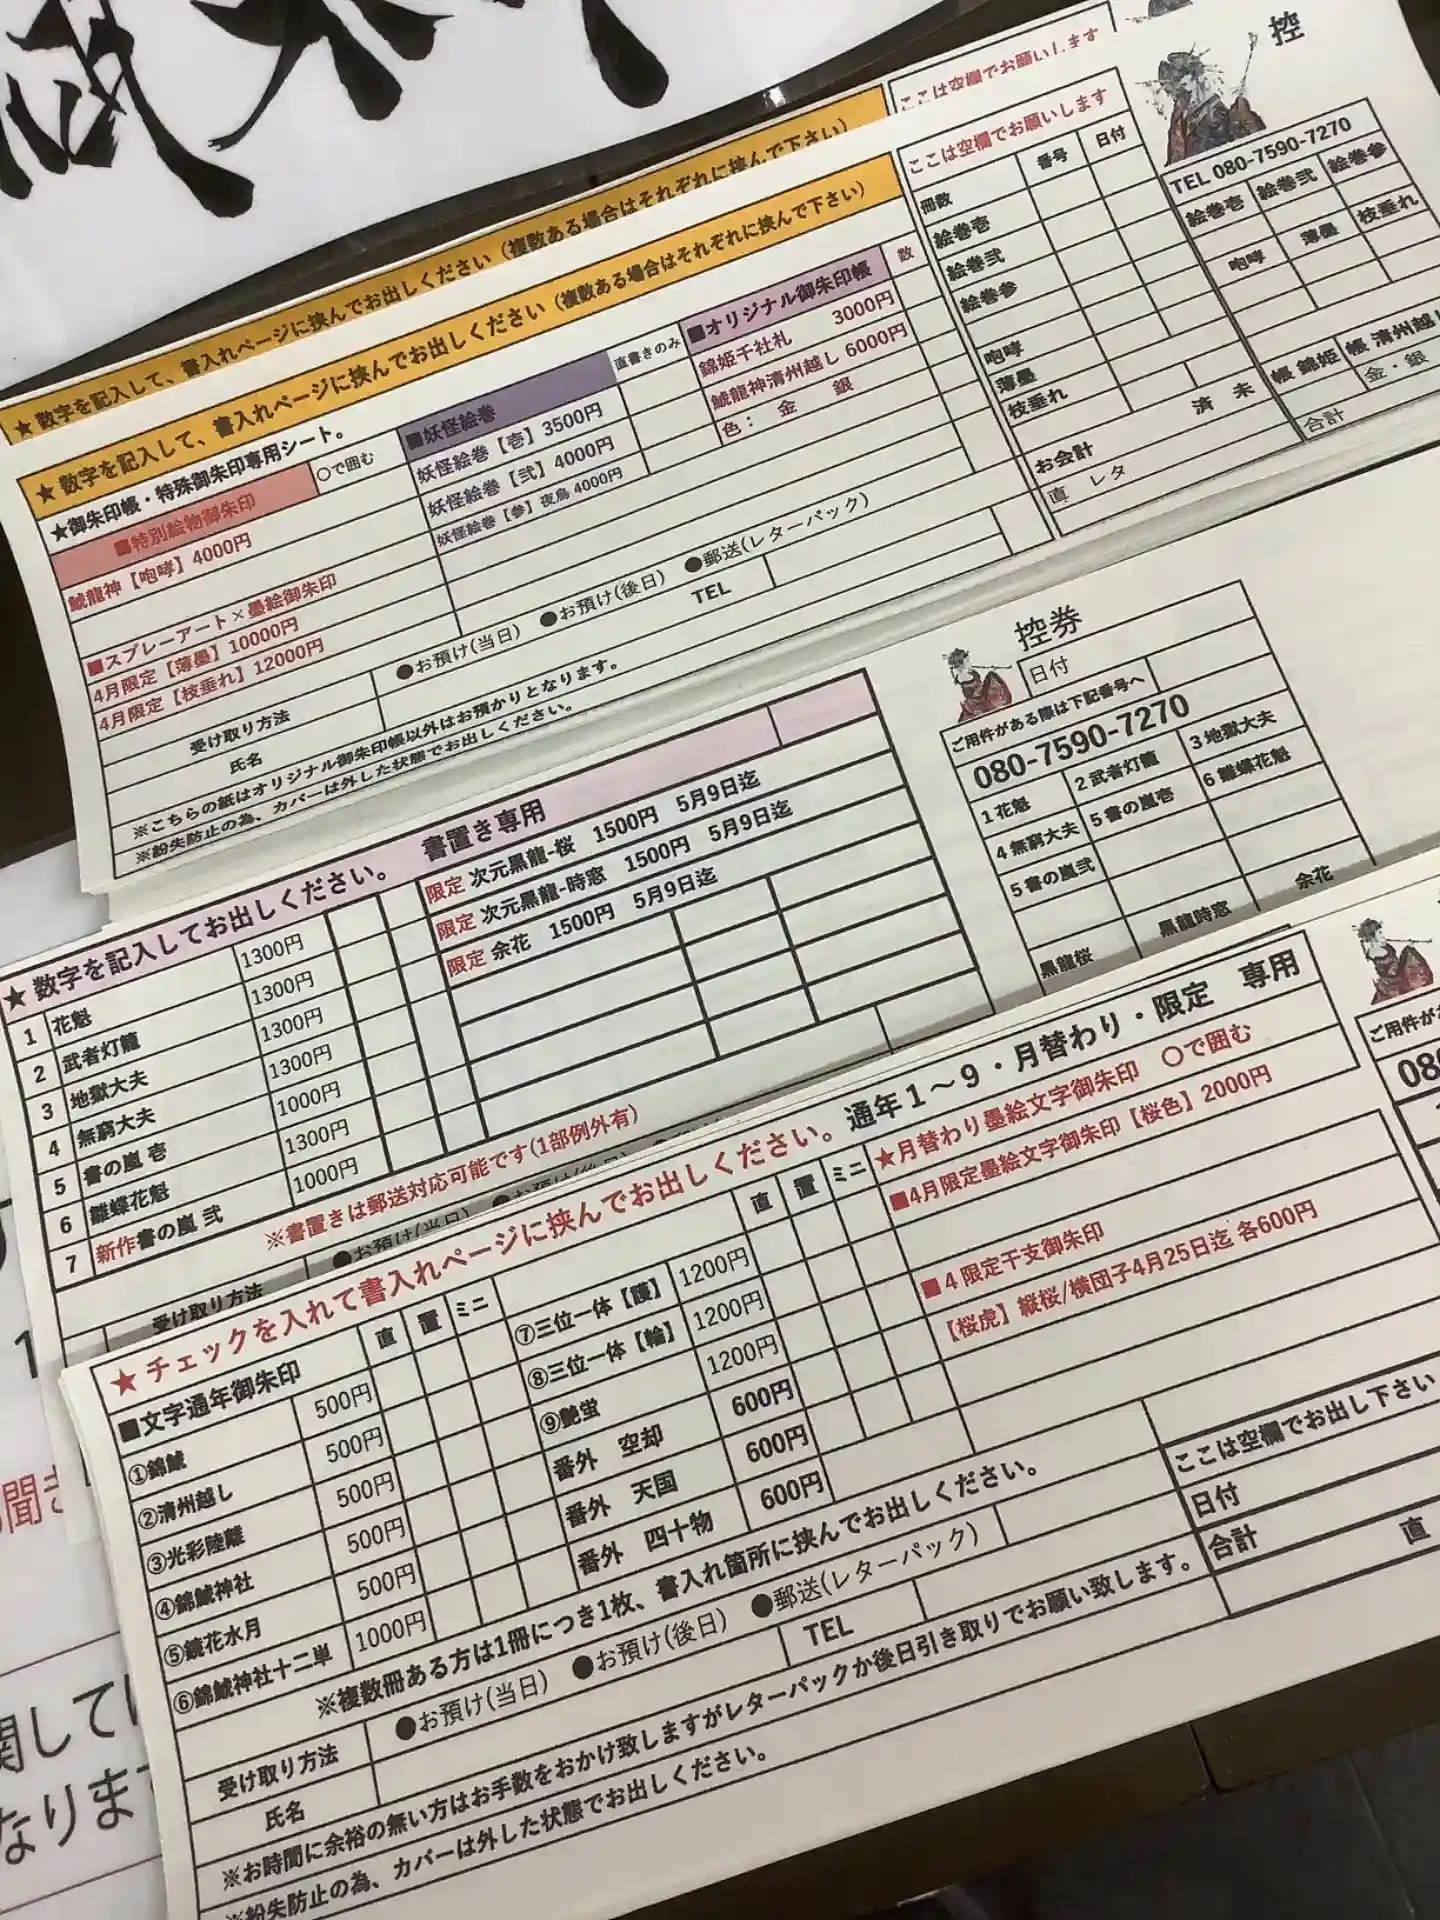 ここは空欄でお願いします
★ 数字を記入して、書入れページに挟んでお出しください（複数ある場合はそれぞれに挟んで下さい）
★ 数字を記入して、書入れページに挟んでお出しください（複数ある場合はそれぞれに挟んで下さい）
★御朱印帳・特殊御朱印専用シート。
■特別絵物御朱印
○で囲む
鯱龍神【咆哮】4000円
■スプレーアート×墨絵御朱印
4月限定【薄墨】10000円
4月限定【枝垂れ】12000円
■妖怪絵巻
直書きのみ
妖怪絵巻【壱】3500円
妖怪絵巻【弐】4000円
妖怪絵巻【参】夜鳥 4000円
■オリジナル御朱印帳
数
錦姫千社札 3000円
鯱龍神清州越し 6000円
色： 金 銀
受け取り方法
●お預け(当日) ●お預け(後日) ●郵送(レターパック)
氏名
TEL
※こちらの紙はオリジナル御朱印帳以外はお預かりとなります。
※紛失防止の為、カバーは外した状態でお出しください。
ここは空欄でお願いします
番号 日付
冊数
絵巻壱
絵巻弐
絵巻参
咆哮
薄墨
枝垂れ
済 未
お会計
直 レタ
控
TEL 080-7590-7270
絵巻壱 絵巻弐 絵巻参
咆哮 薄墨 枝垂れ
帳 錦姫 帳 清州越し
金・銀
合計
★ 数字を記入してお出しください。 書置き専用
1 花魁 1300円
2 武者灯籠 1300円
3 地獄大夫 1300円
4 無窮大夫 1300円
5 書の嵐 壱 1000円
6 雛蝶花魁 1300円
7 新作書の嵐 弐 1000円
限定 次元黒龍-桜 1500円 5月9日迄
限定 次元黒龍-時窓 1500円 5月9日迄
限定 余花 1500円 5月9日迄
※書置きは郵送対応可能です(1部例外有)
受け取り方法
●お預け(当日)
控券
日付
ご用件がある際は下記番号へ
080-7590-7270
1花魁 2武者灯籠 3地獄大夫
4無窮大夫 5書の嵐壱 6雛蝶花魁
5書の嵐弐
黒龍桜 黒龍時窓 余花
★ チェックを入れて書入れページに挟んでお出しください。通年１～９・月替わり・限定 専用
■文字通年御朱印
直 置 ミニ
①錦鯱 500円
②清州越し 500円
③光彩陸離 500円
④錦鯱神社 500円
⑤鏡花水月 500円
⑥錦鯱神社十二単 1000円
直 置 ミニ
⑦三位一体【護】 1200円
⑧三位一体【輪】 1200円
⑨艶蛍 1200円
番外 空却 600円
番外 天国 600円
番外 四十物 600円
★月替わり墨絵文字御朱印 ○で囲む
■4月限定墨絵文字御朱印【桜色】2000円
■４限定干支御朱印
【桜虎】縦桜/横団子4月25日迄 各600円
※複数冊ある方は1冊につき1枚、書入れ箇所に挟んでお出しください。
受け取り方法
●お預け(当日) ●お預け(後日) ●郵送(レターパック)
氏名
TEL
※お時間に余裕の無い方はお手数をおかけ致しますがレターパックか後日引き取りでお願い致します。
※紛失防止の為、カバーは外した状態でお出しください。
ここは空欄でお出し下さい
日付
合計
直
ご用件が
080
聞き
関しては
なります